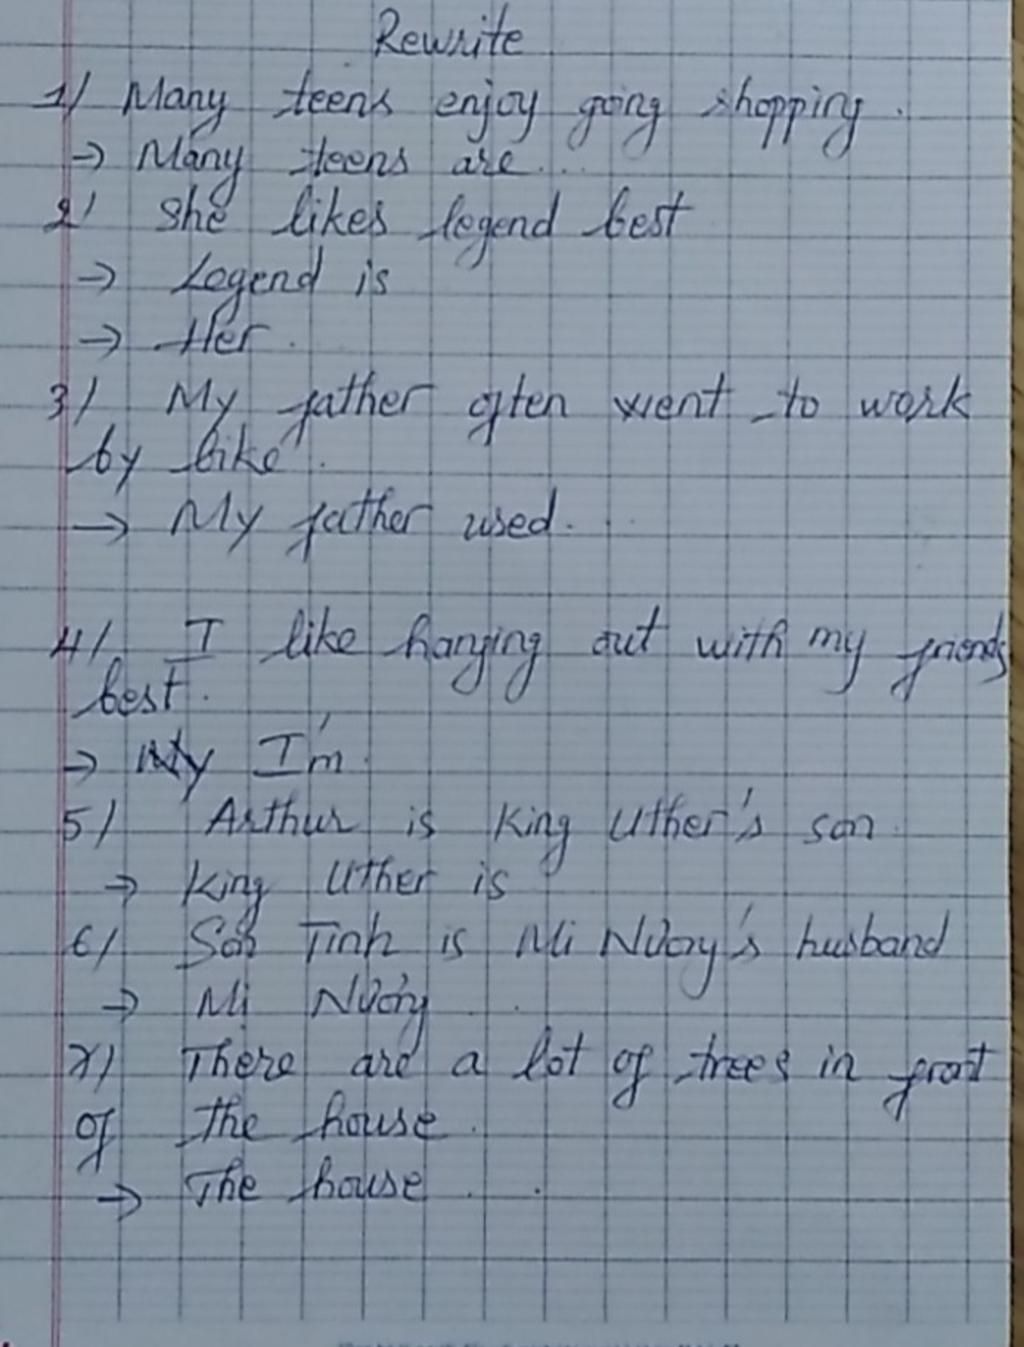 Rewrite
1/ Many teens enjoy going shopping.
→ Many teens are...
2/ She likes legend best
→ Legend is
→ Her.
3/ My father often went to work
by bike.
→ My father used...
4/ I like hanging out with my friends
best.
→ I'm
5/ Arthur is King Uther's son.
→ King Uther is
6/ Sơn Tinh is Mi Nương's husband
→ Mị Nương
7/ There are a lot of trees in front
of the house.
→ The house..